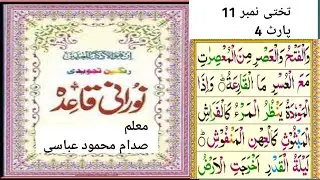 تختی نمبر 11
پارٹ 4
رنگین تجویدی
نورانی قاعدہ
معلم
صدام محمود عباسی
وَالْفَتْحُ وَالْعَصْرِ مِنَ الْمُعْصِرٰتِ
مَعَ الْعُسْرِ مَا الْقَارِعَةُ وَإِذَا
الْمَوْءٗدَةُ يَنْظُرُ الْمَرْءُ كَالْفَرَاشِ
الْمَبْثُوْثِ كَالْعِهْنِ الْمَنْفُوْشِ
لَيْلَةُ الْقَدْرِ اَخْرَجَتِ الْاَرْضُ